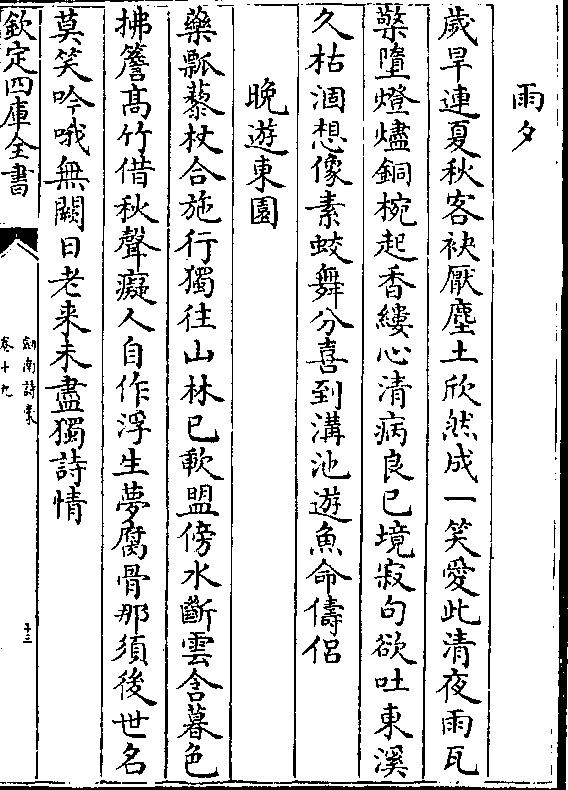 雨夕
歲旱連夏秋客袂厭塵土欣然成一笑愛此清夜雨瓦
檠墮燈燼銅椀起香縷心清病良已境寂句欲吐東溪
久枯涸想像素蛟舞分喜到溝池遊魚命儔侣
晚遊東園
藥瓢藜杖合施行獨往山林已軟盟傍水斷雲含暮色
拂簷髙竹借秋聲癡人自作浮生夢腐骨那須後世名
莫笑吟哦無闕日老来未盡獨詩情
欽定四庫全書
劍南詩稾
卷十九
十三